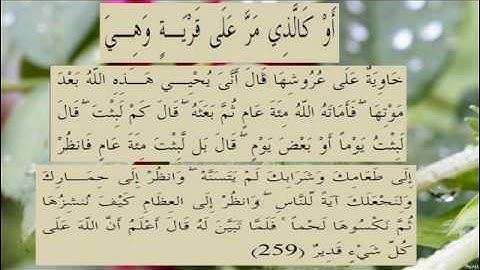 أَوْ كَالَّذِي مَرَّ عَلَى قَرْيَةٍ وَهِيَ
خَاوِيَةٌ عَلَى عُرُوشِهَا قَالَ أَنَّىَ يُحْيِي هَذِهِ اللّهُ بَعْدَ
مَوْتِهَا فَأَمَاتَهُ اللّهُ مِئَةَ عَامٍ ثُمَّ بَعَثَهُ قَالَ كَمْ لَبِثْتَ قَالَ
لَبِثْتُ يَوْماً أَوْ بَعْضَ يَوْمٍ قَالَ بَل لَّبِثْتَ مِئَةَ عَامٍ فَانظُرْ
إِلَى طَعَامِكَ وَشَرَابِكَ لَمْ يَتَسَنَّهْ وَانظُرْ إِلَى حِمَارِكَ
وَلِنَجْعَلَكَ آيَةً لِّلنَّاسِ وَانظُرْ إِلَى العِظَامِ كَيْفَ نُنشِزُهَا
ثُمَّ نَكْسُوهَا لَحْماً فَلَمَّا تَبَيَّنَ لَهُ قَالَ أَعْلَمُ أَنَّ اللّهَ عَلَى
كُلِّ شَيْءٍ قَدِيرٌ (259)